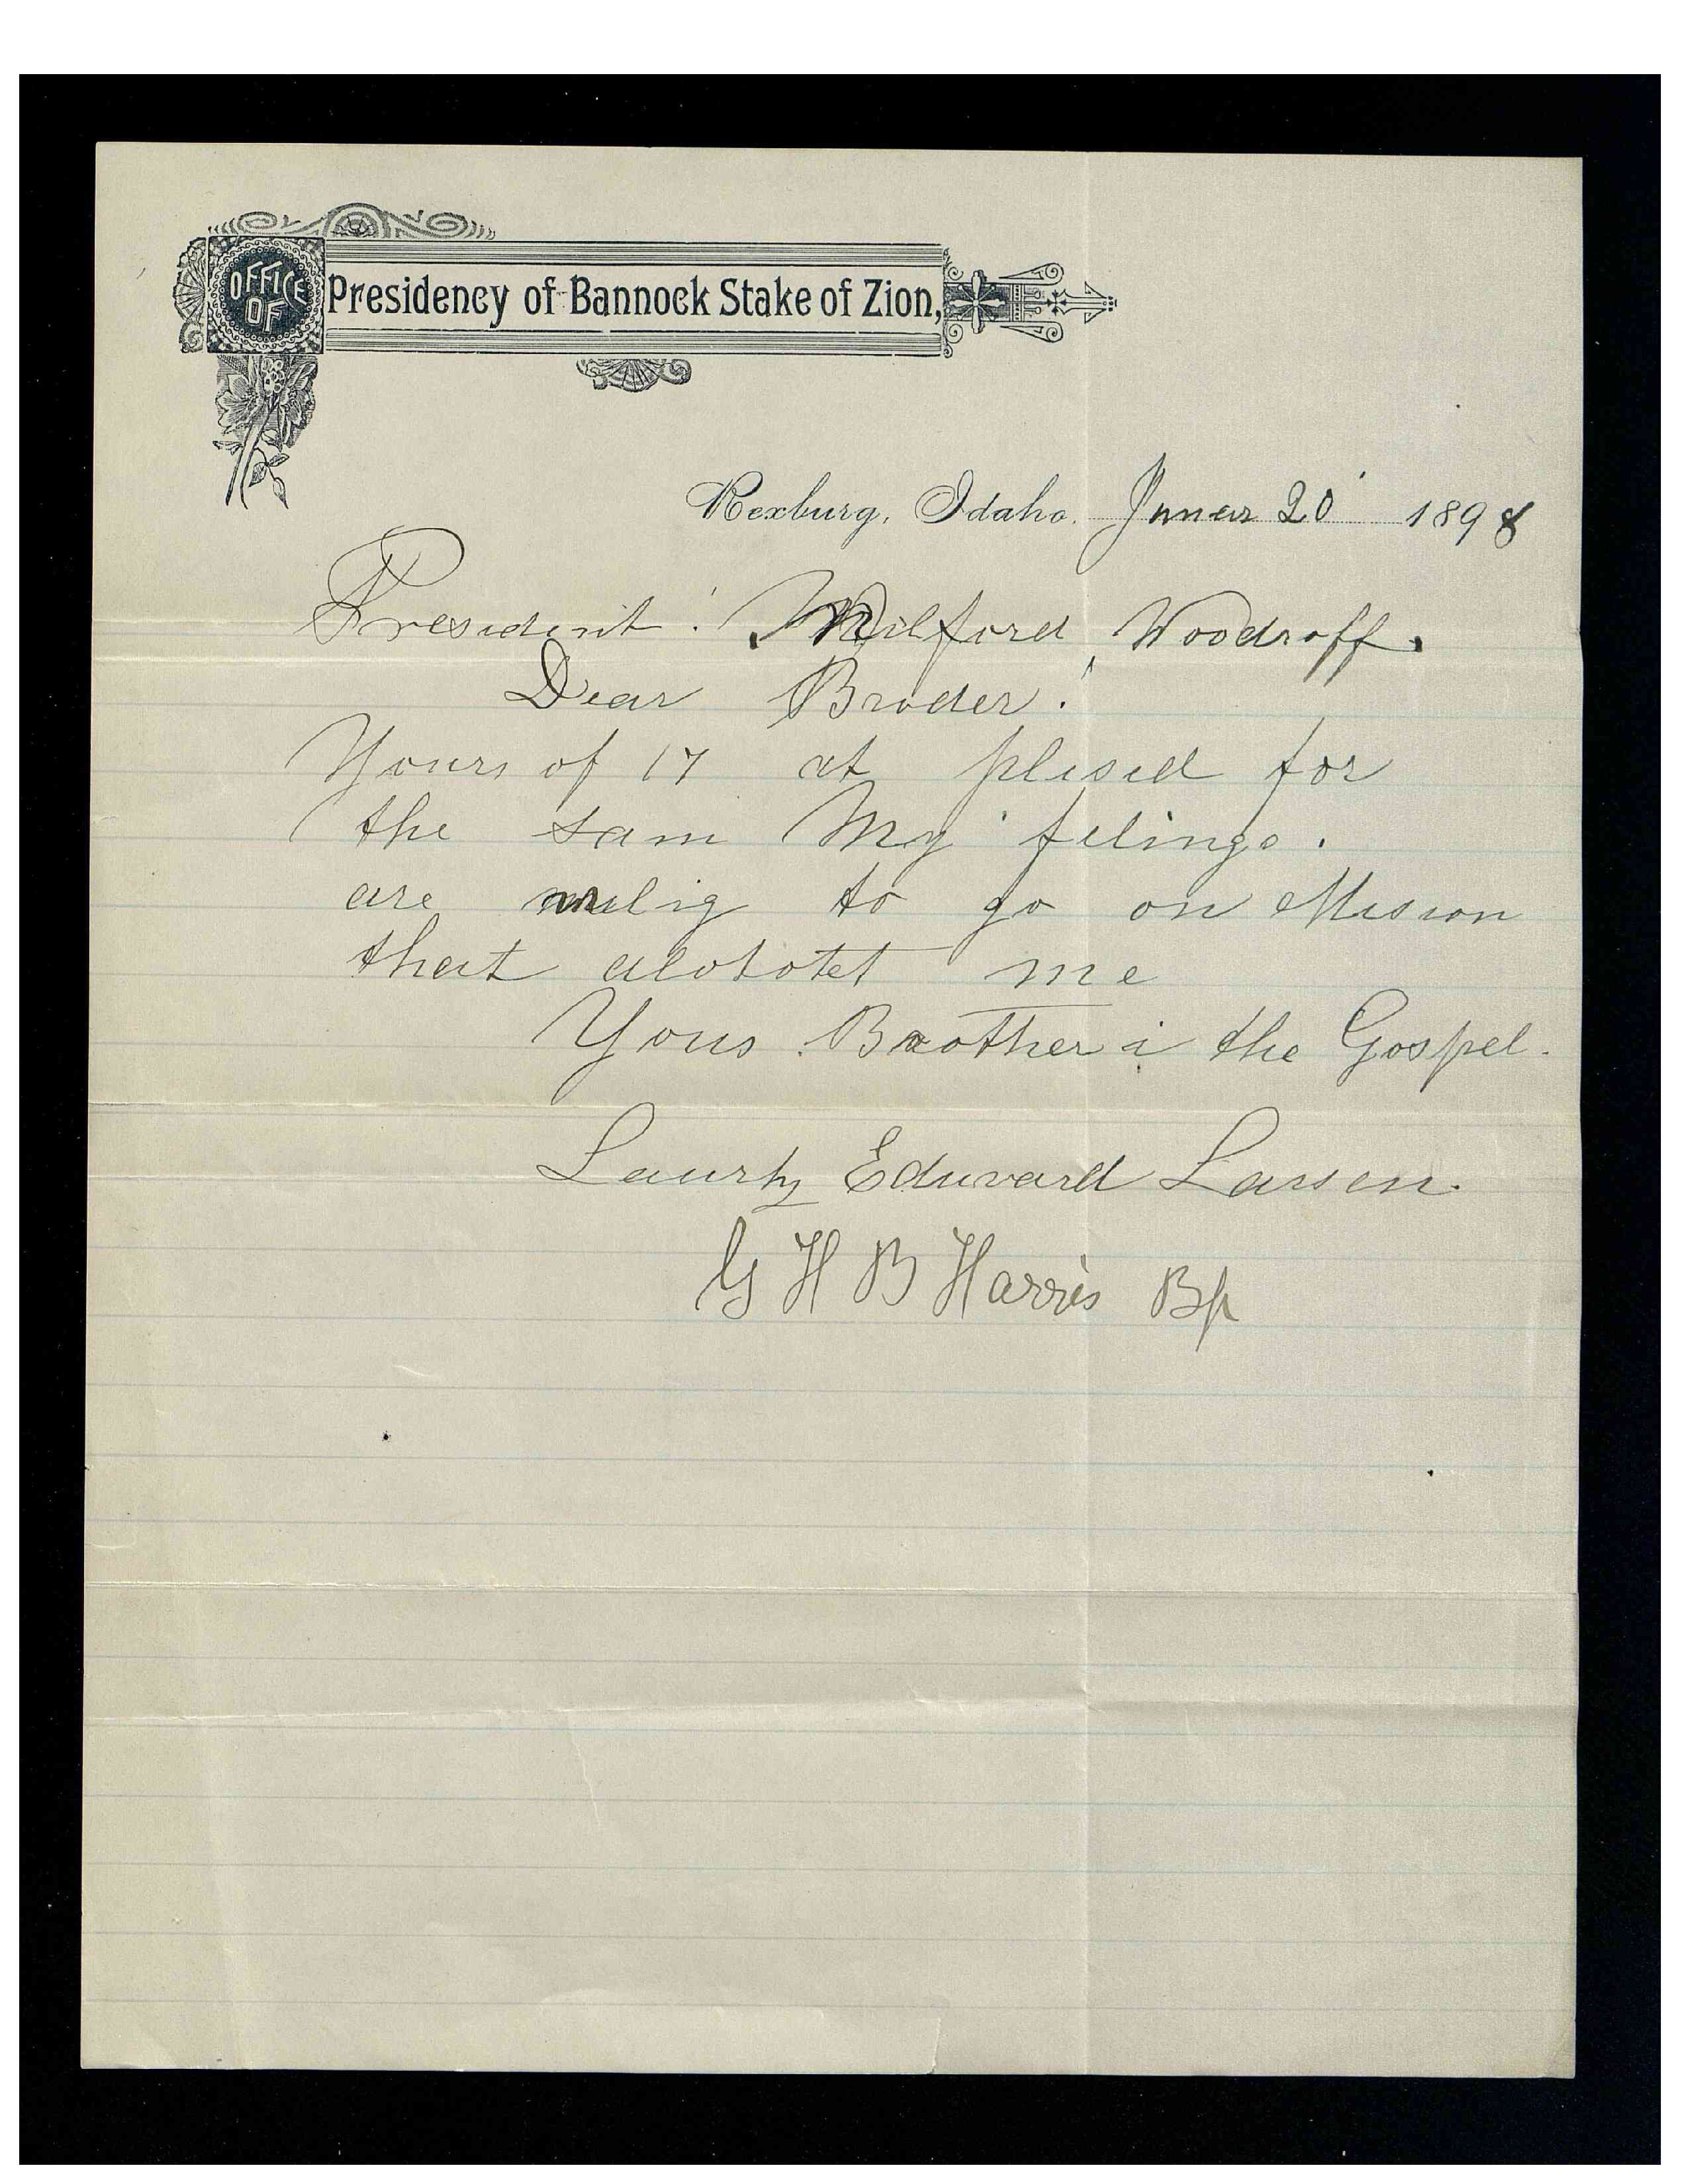 OFFICE OF Presidency of Bannock Stake of Zion,
Rexburg, Idaho. Januar 20 1898
President! Wilford Woodroff.
Dear Broder!
Yours of 17 at plesed for
the sam My felings.
are wilig to go on Mision
that alototet me
Yous Brother i the Gospel.
Lauritz Eduvard Larsen.
G H B Harris Bp